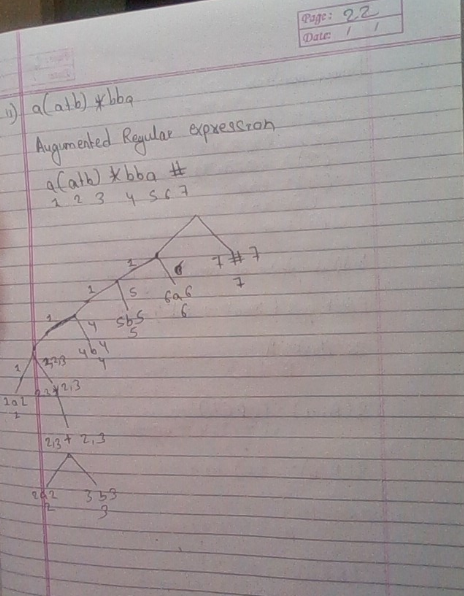 Page: 22
Date: / /
ii) a(a+b) *bba
Augumented Regular expression
a(a+b) *bba #
1 2 3 4 5 6 7
1 6 7 # 7
7
1 5 6a6
6
1 4 5b5
5
1 2,3 4b4
4
1a1 2,3*2,3
1
2,3 + 2,3
2a2 3b3
2 3